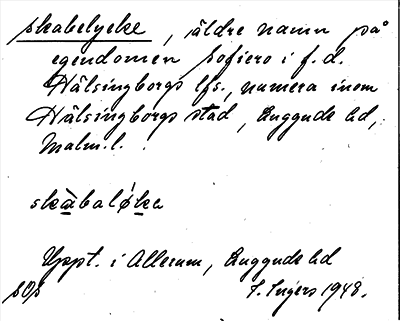 skabelycke, äldre namn på
egendomen Sofiero i f.d.
Hälsingborgs lfs., numera inom
Hälsingborgs stad, Luggude hd,
Malm.l.
skàbaløka
Uppt. i Allerum, Luggude hd
SOS S. Ingers 1948.